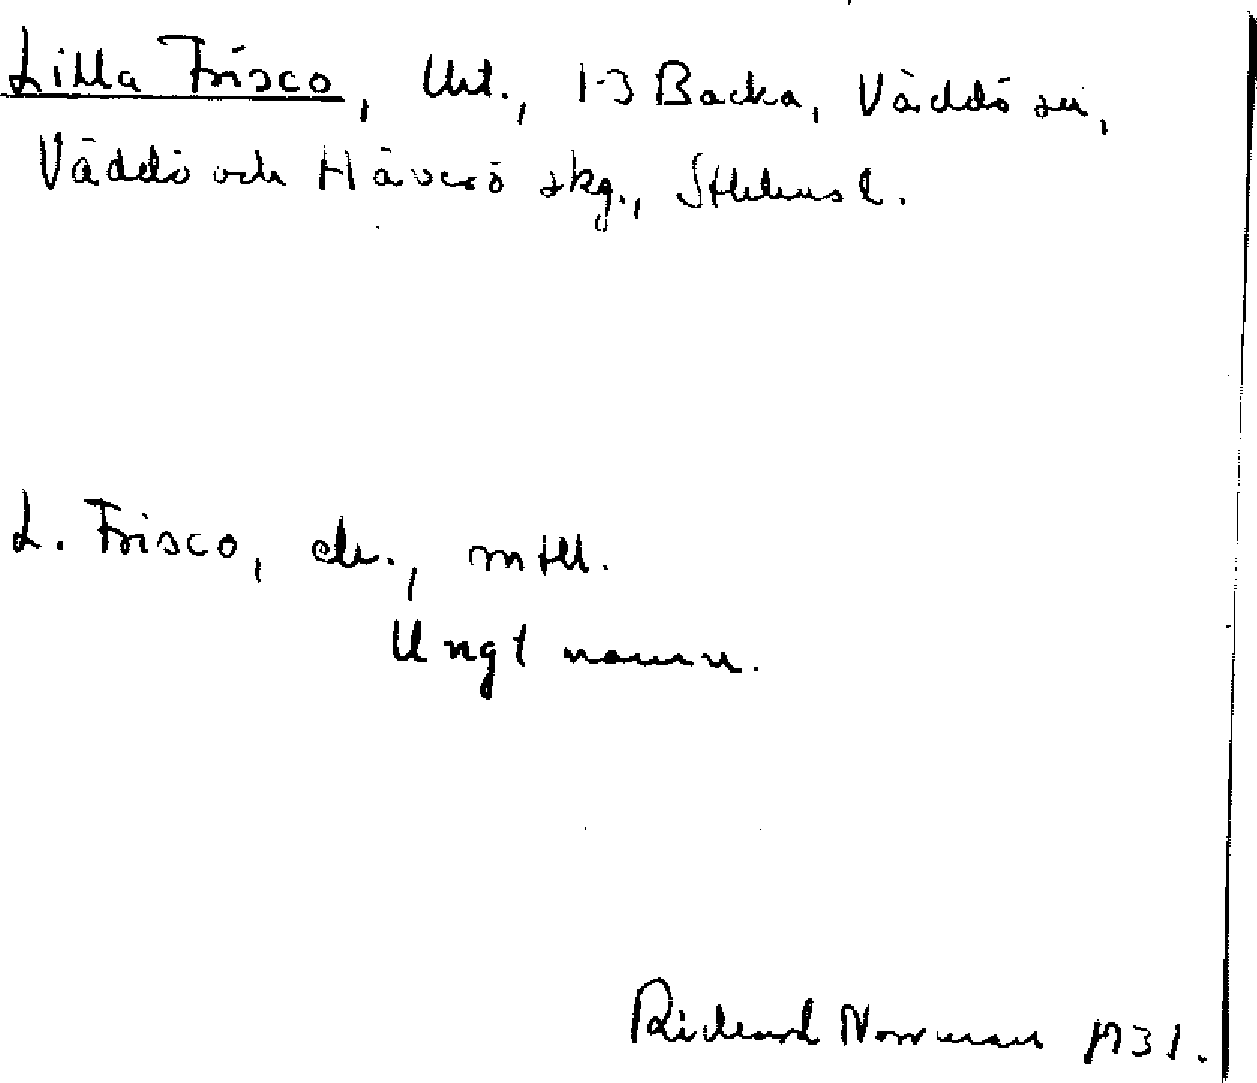 Lilla Frisco, Urt., 1-3 Backa, Väddö sn,
Väddö och Häverö skg., Sthlms l.
L. Frisco, ds., mtll.
Ungt namn.
Richard Norrman 1931.